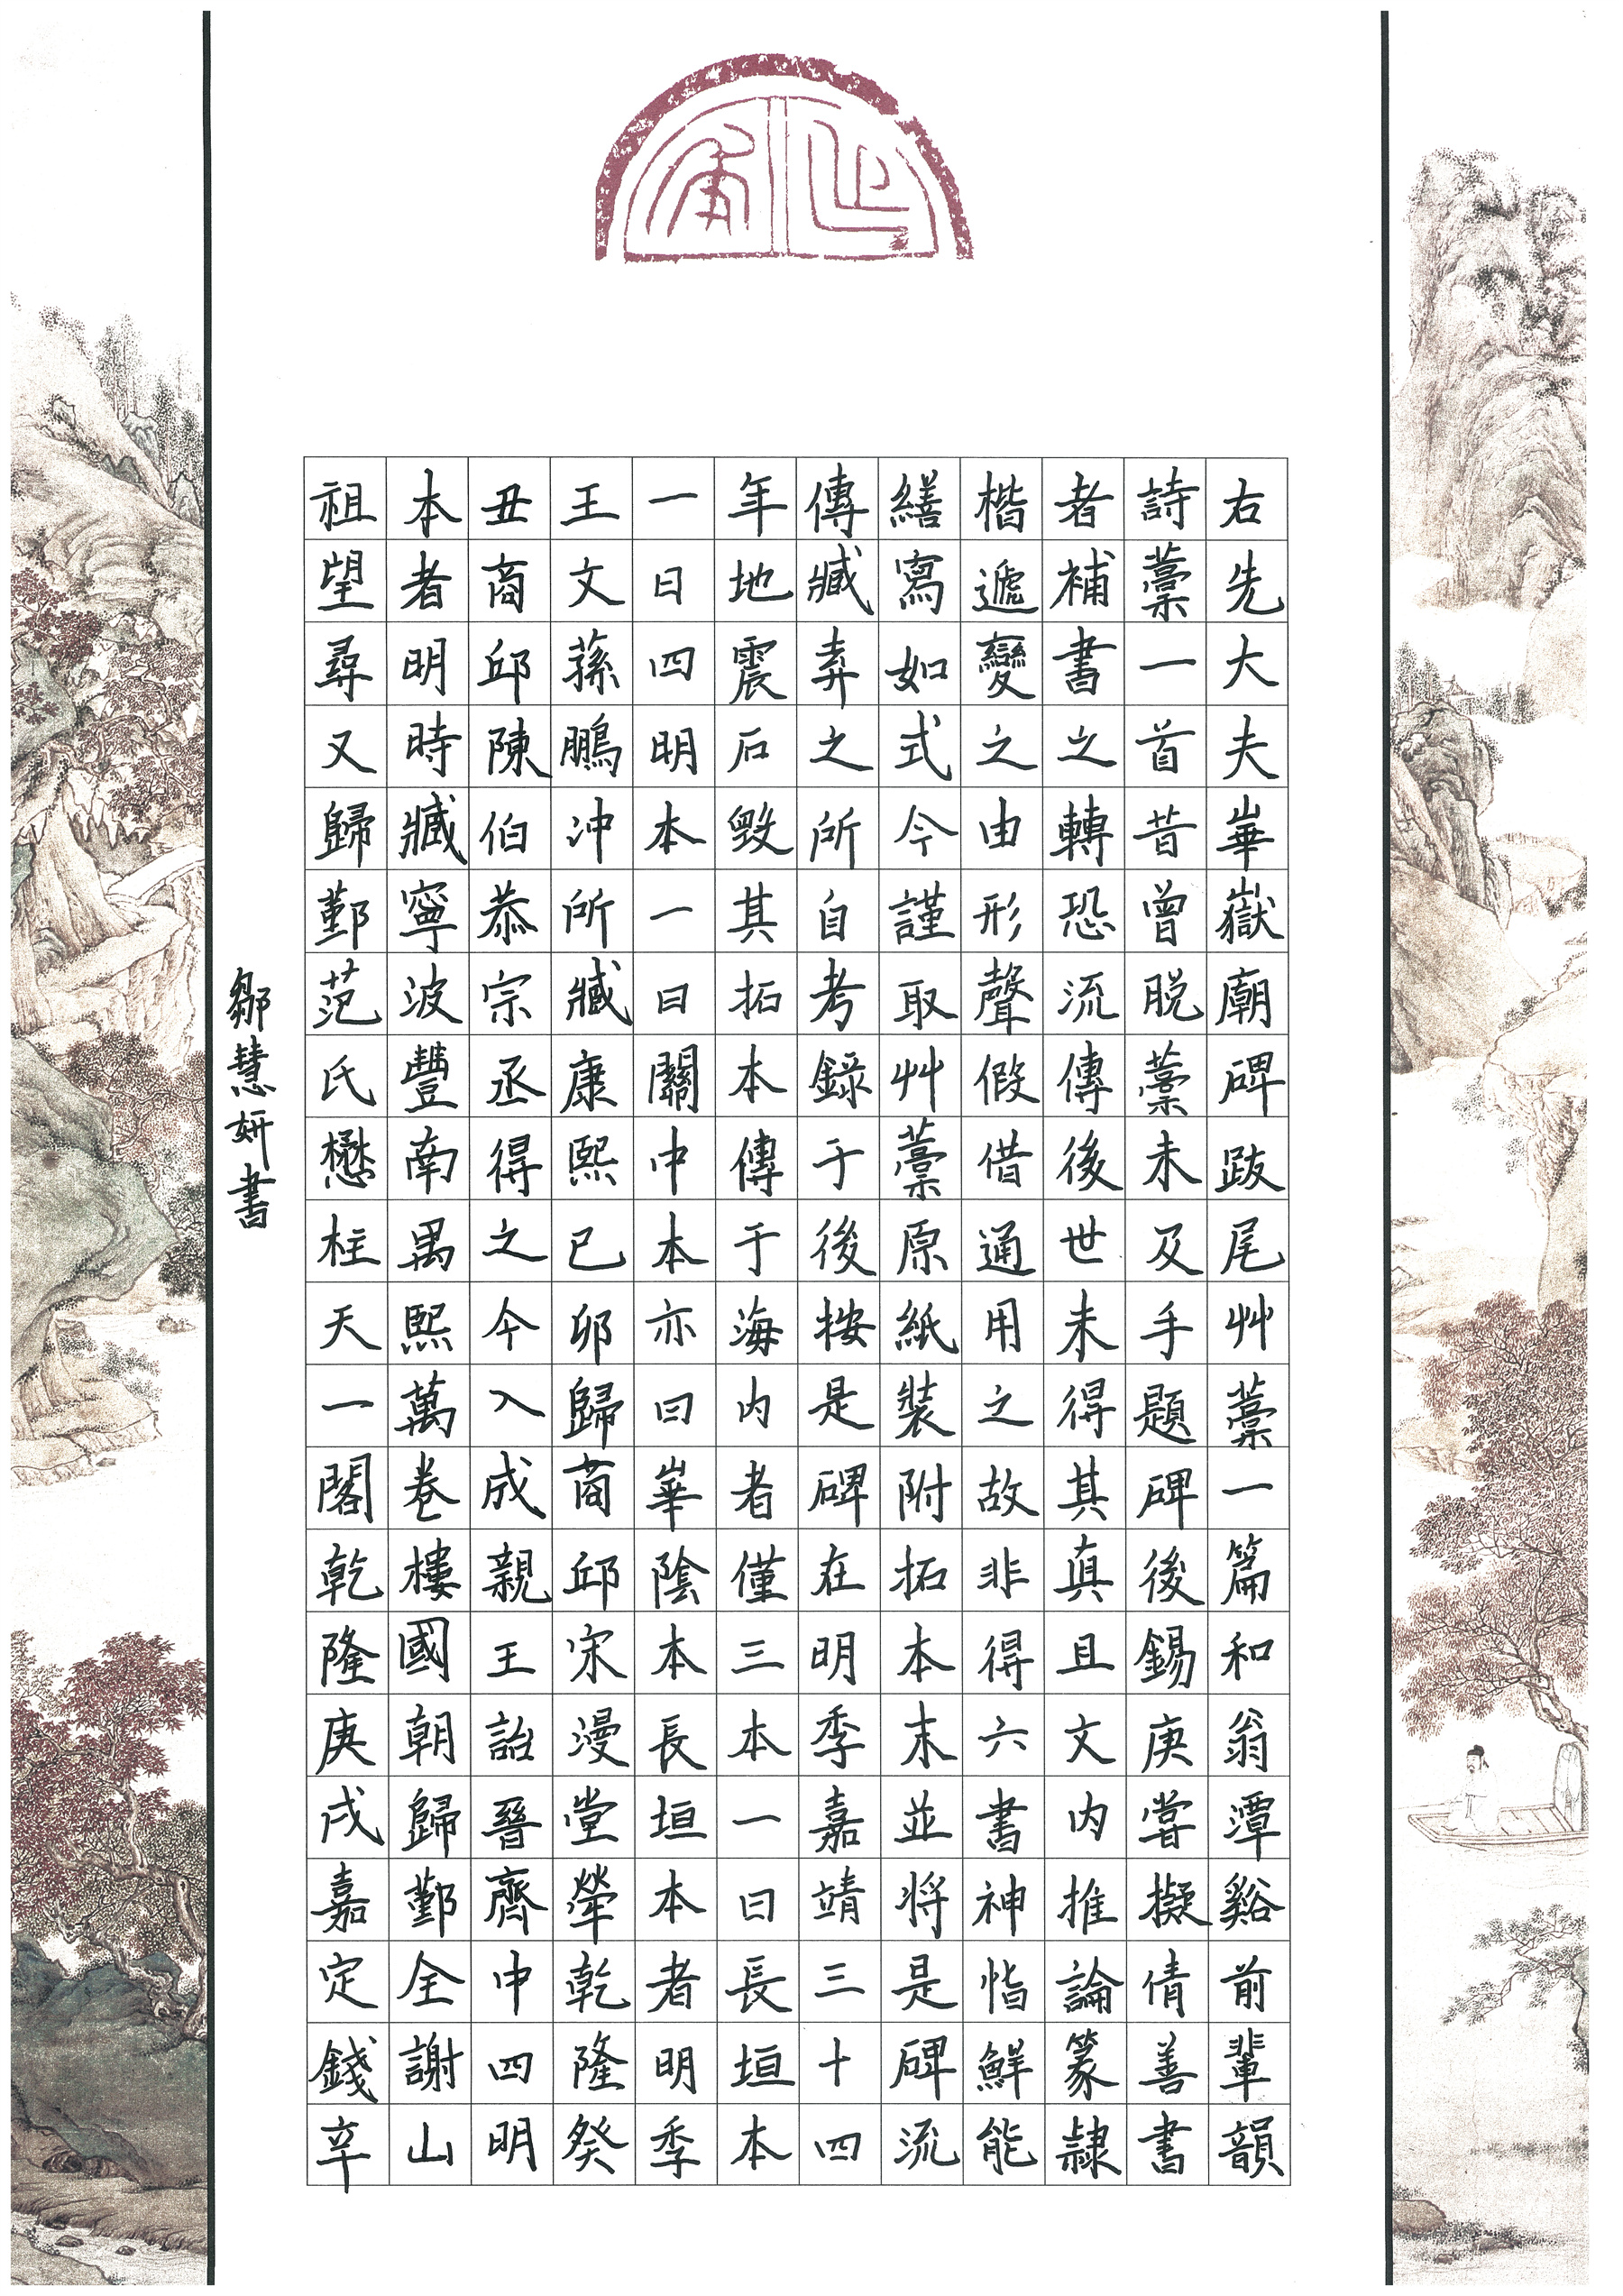 右先大夫崋嶽廟碑跋尾艸藁一篇和翁潭谿前輩韻
詩藁一首昔曾脱藁未及手題碑後錫庚嘗擬倩善書
者補書之轉恐流傳後世未得其真且文内推論篆隷
楷遞變之由形聲假借通用之故非得六書神恉鮮能
繕寫如式今謹取艸藁原紙裝附拓本末並將是碑流
傳臧弆之所自考錄于後按是碑在明季嘉靖三十四
年地震石毀其拓本傳于海内者僅三本一曰長垣本
一曰四明本一曰關中本亦曰崋陰本長垣本者明季
王文蓀鵬沖所臧康熙己卯歸商邱宋漫堂犖乾隆癸
丑商邱陳伯恭宗丞得之今入成親王詒晉齊中四明
本者明時臧寧波豐南禺熙萬卷樓國朝歸鄞全謝山
祖望尋又歸鄞范氏懋柱天一閣乾隆庚戌嘉定錢辛
鄒慧妍書